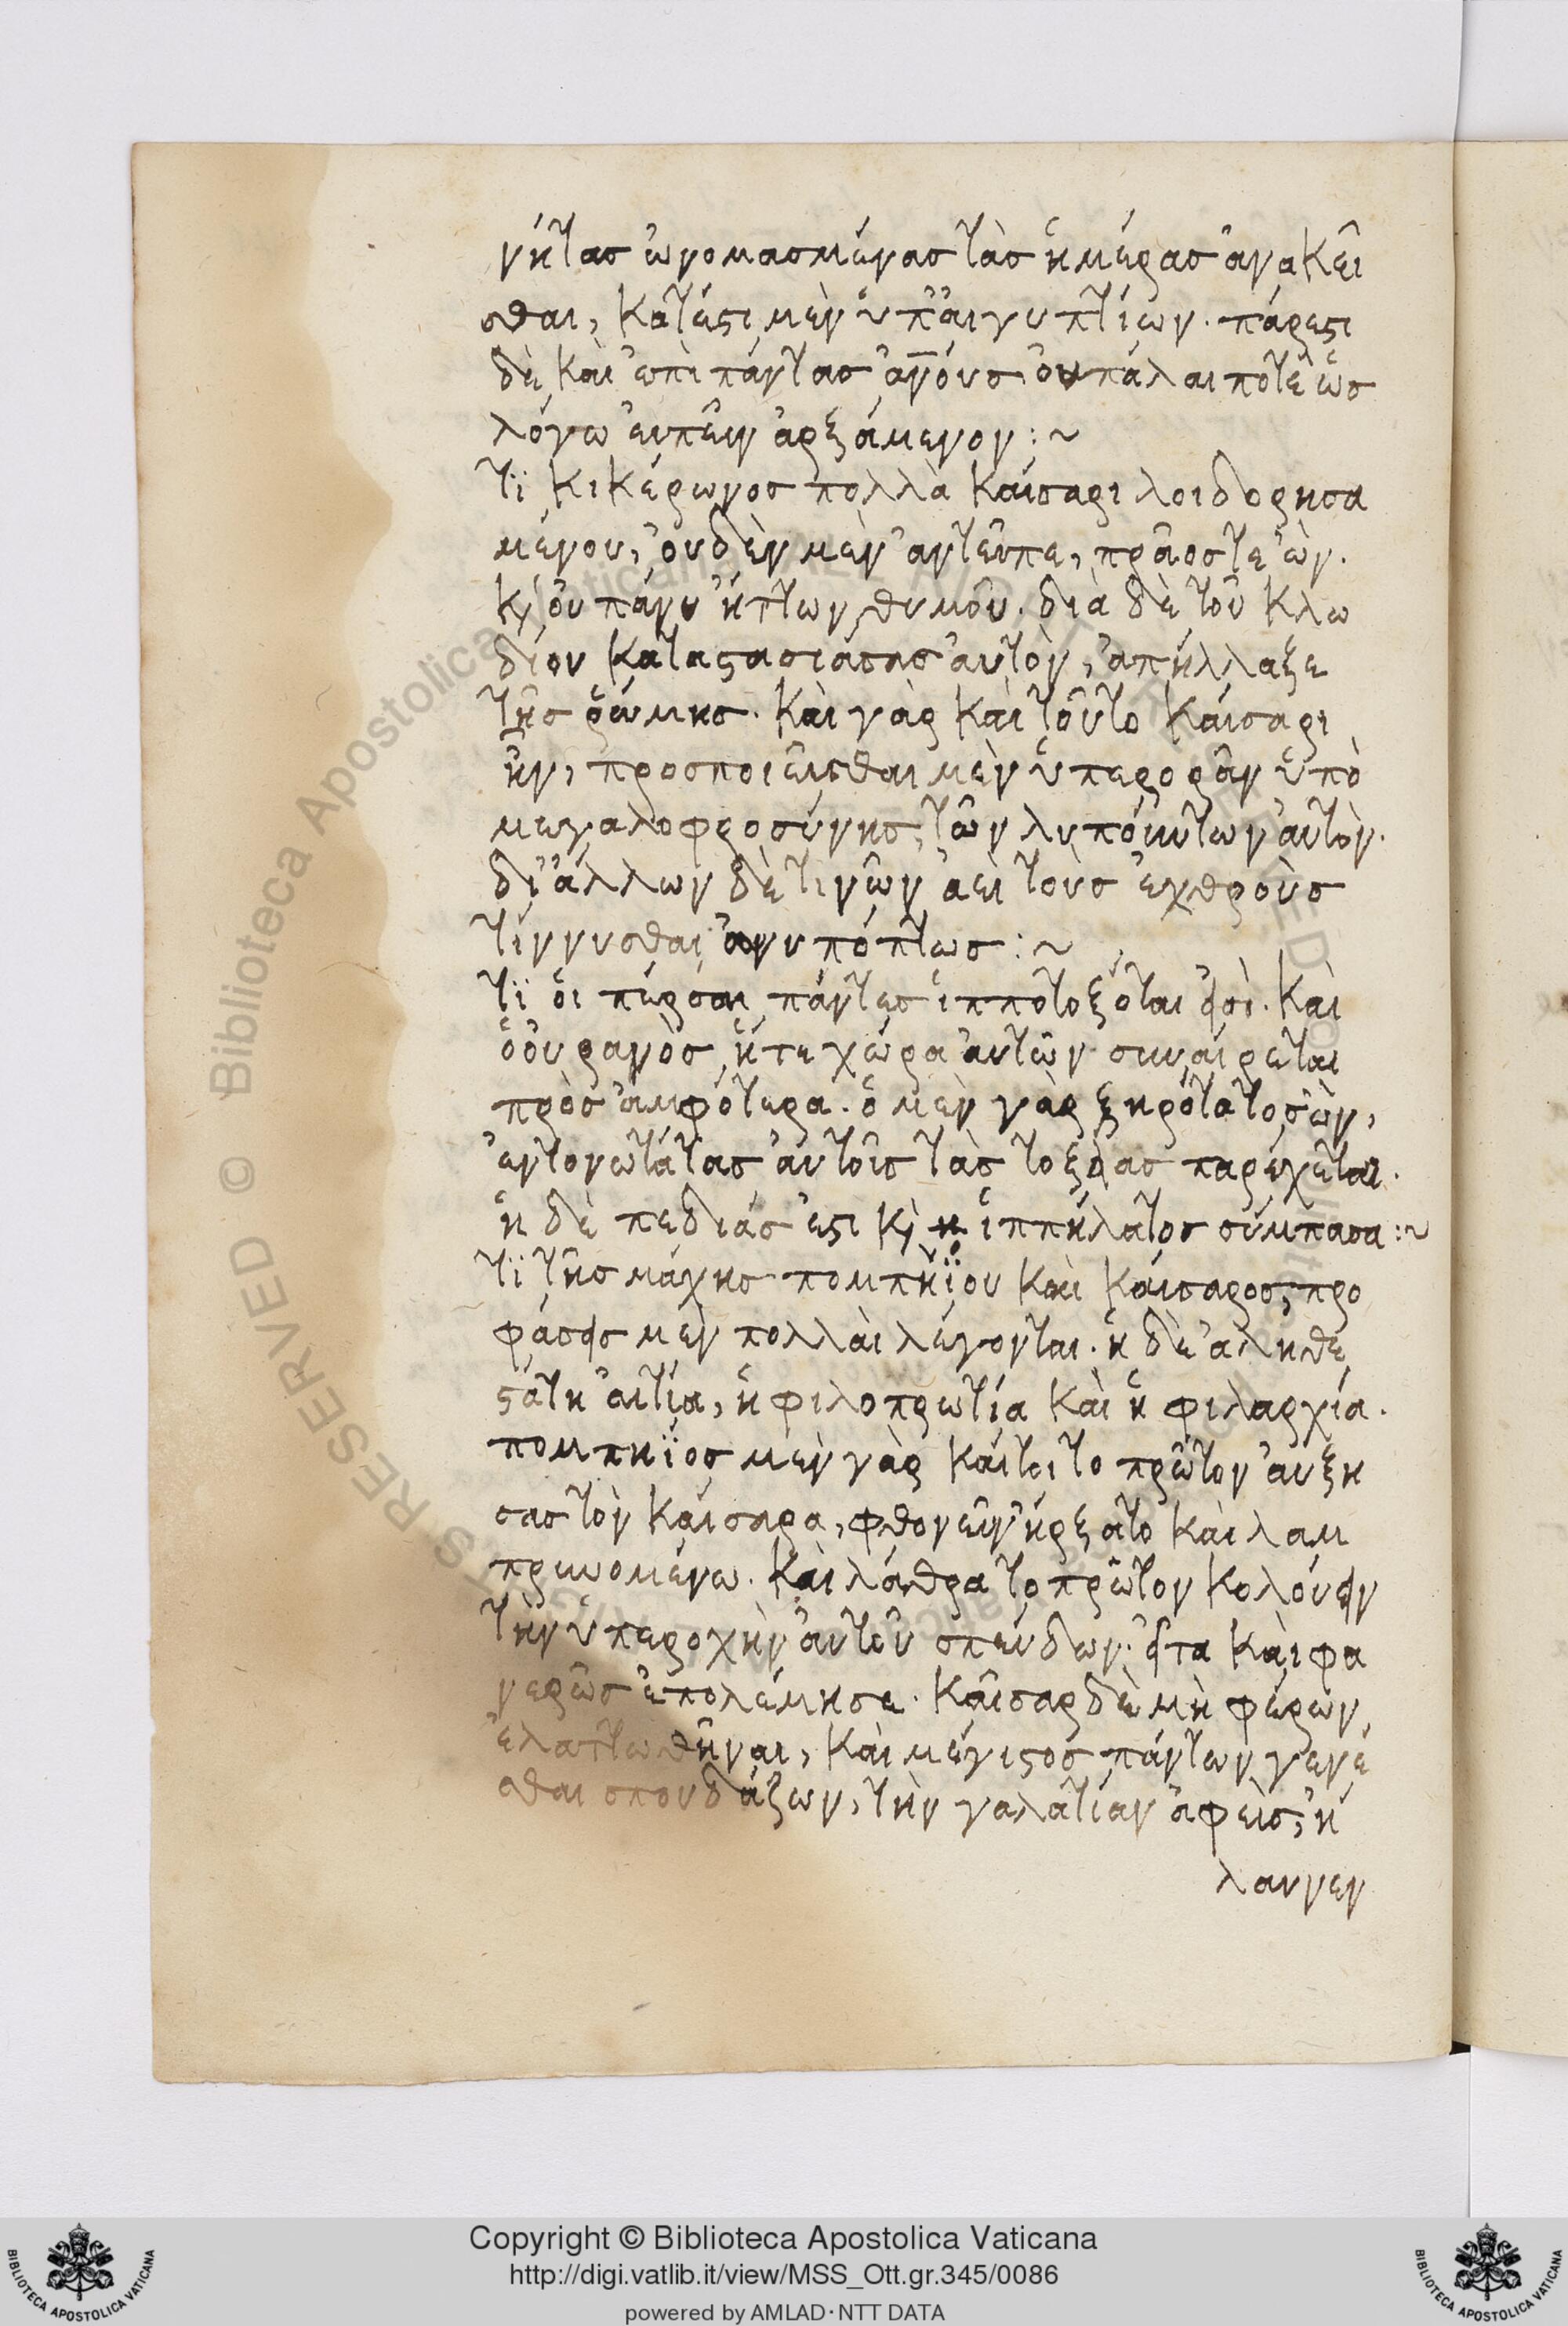 νήτας ὠνομασμένας τὰς ἡμέρας ἀνακεῖ
σθαι, κατέστι μὲν ὑπ' ἀιγυπτίων. πάρεστι
δὲ καὶ ἐπὶ πάντας ἀν̅ους ὀυ πάλαι ποτὲ ὡς
λόγω ἐιπεῖν ἀρξάμενον :~
τϊ κικέρωνος πολλὰ καίσαρι λοιδορησα
μένου, ὀυδὲν μὲν ἀντεῖπε, πρᾶος τε ὢν.
κ̀ ὀυ πάνυ ἥττων θυμοῦ. διὰ δὲ τοῦ κλω
δίου καταστασιάσας ἀυτὸν, ἀπήλλαξε
τῆς ῥώμης. καὶ γὰρ καὶ τοῦτο καίσαρι
ἦν, προσποιεῖσθαι μὲν ὑπερορᾶν ὑπὸ
μεγαλοφροσύνης, τῶν λυπούντων ἀυτὸν.
δι' ἄλλων δὲ τινῶν ἀεὶ τοὺς ἐχθροὺς
τίννυσθαι ἀνυπόπτως :~
τϊ ὁι πέρσαι πάντες ἱπποτοξόται εἰσὶ. καὶ
ὁ ὀυρανὸς, ἥ τε χώρα ἀυτῶν συναίρεται
πρὸς ἀμφότερα. ὁ μὲν γὰρ ξηρότατος ὢν,
ἐντονωτάτας ἀυτοῖς τὰς τοξείας παρέχεται.
ἡ δὲ πεδιάς ἐστι κ̀ ἱππήλατος σύμπασα :~
τϊ τῆς μάχης πομπηΐου καὶ καίσαρος, προ
φάσεις μὲν πολλαὶ λέγονται. ἡ δὲ ἀληθε
στάτη ἀιτία, ἡ φιλοπρωτία καὶ ἡ φιλαρχία.
πομπηΐος μὲν γὰρ καίτοι τὸ πρῶτον ἀυξη
σας τὸν καίσαρα, φθονεῖν ἤρξατο καὶ λαμ
πρυνομένω. καὶ λάθρα τὸ πρῶτον κολούειν
τὴν ὑπεροχὴν ἀυτοῦ σπεύδων. εἶτα καὶ φα
νερῶς ἐπολέμησε. καῖσαρ δὲ μὴ φέρων
ἐλαττωθῆναι, καὶ μέγιστος πάντων γενέ
σθαι σπουδάζων, τὴν γαλατίαν ἀφεὶς, ἤ
λαυνεν
Copyright © Biblioteca Apostolica Vaticana
http://digi.vatlib.it/view/MSS_Ott.gr.345/0086
powered by AMLAD·NTT DATA